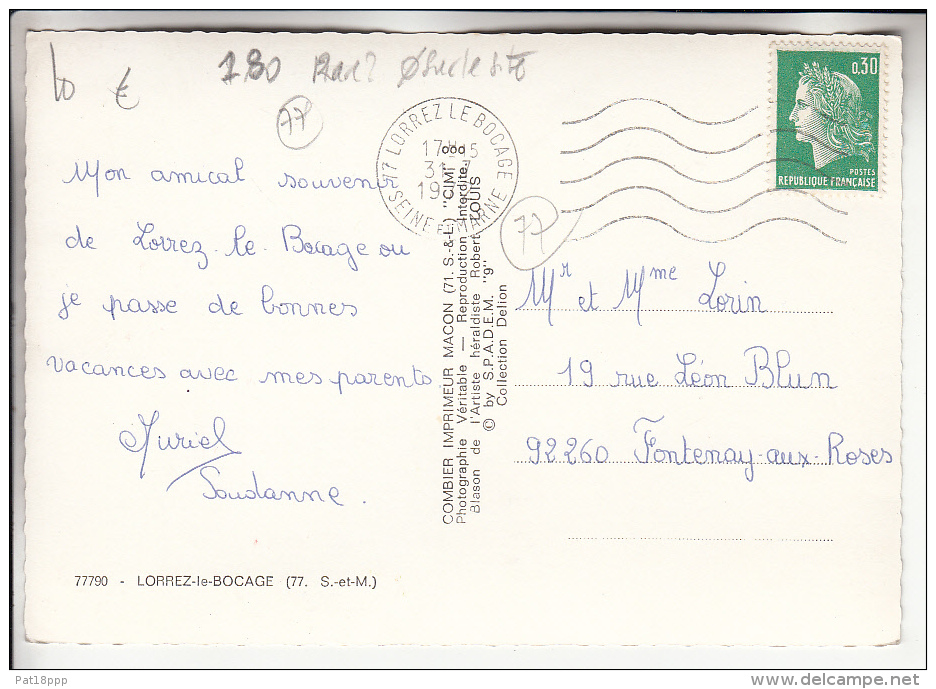 10 €
180
77
77 LORREZ LE BOCAGE
17-15
31
19
SEINE ET MARNE
0,30
POSTES
REPUBLIQUE FRANÇAISE
77
Mon amical souvenir
de Lorrez-le-Bocage ou
je passe de bonnes
vacances avec mes parents.
Muriel
Soudanne.
77790 - LORREZ-le-BOCAGE (77. S.-et-M.)
COMBIER IMPRIMEUR MACON (71. S.-&-L.) "CIM"
Photographie Véritable — Reproduction Interdite.
Blason de l'Artiste héraldiste Robert LOUIS
© by S.P.A.D.E.M. "9"
Collection Delion
Mr et Mme Lorin
19 rue Léon Blum
92260 Fontenay-aux-Roses
Pat18ppp
www.delcampe.net